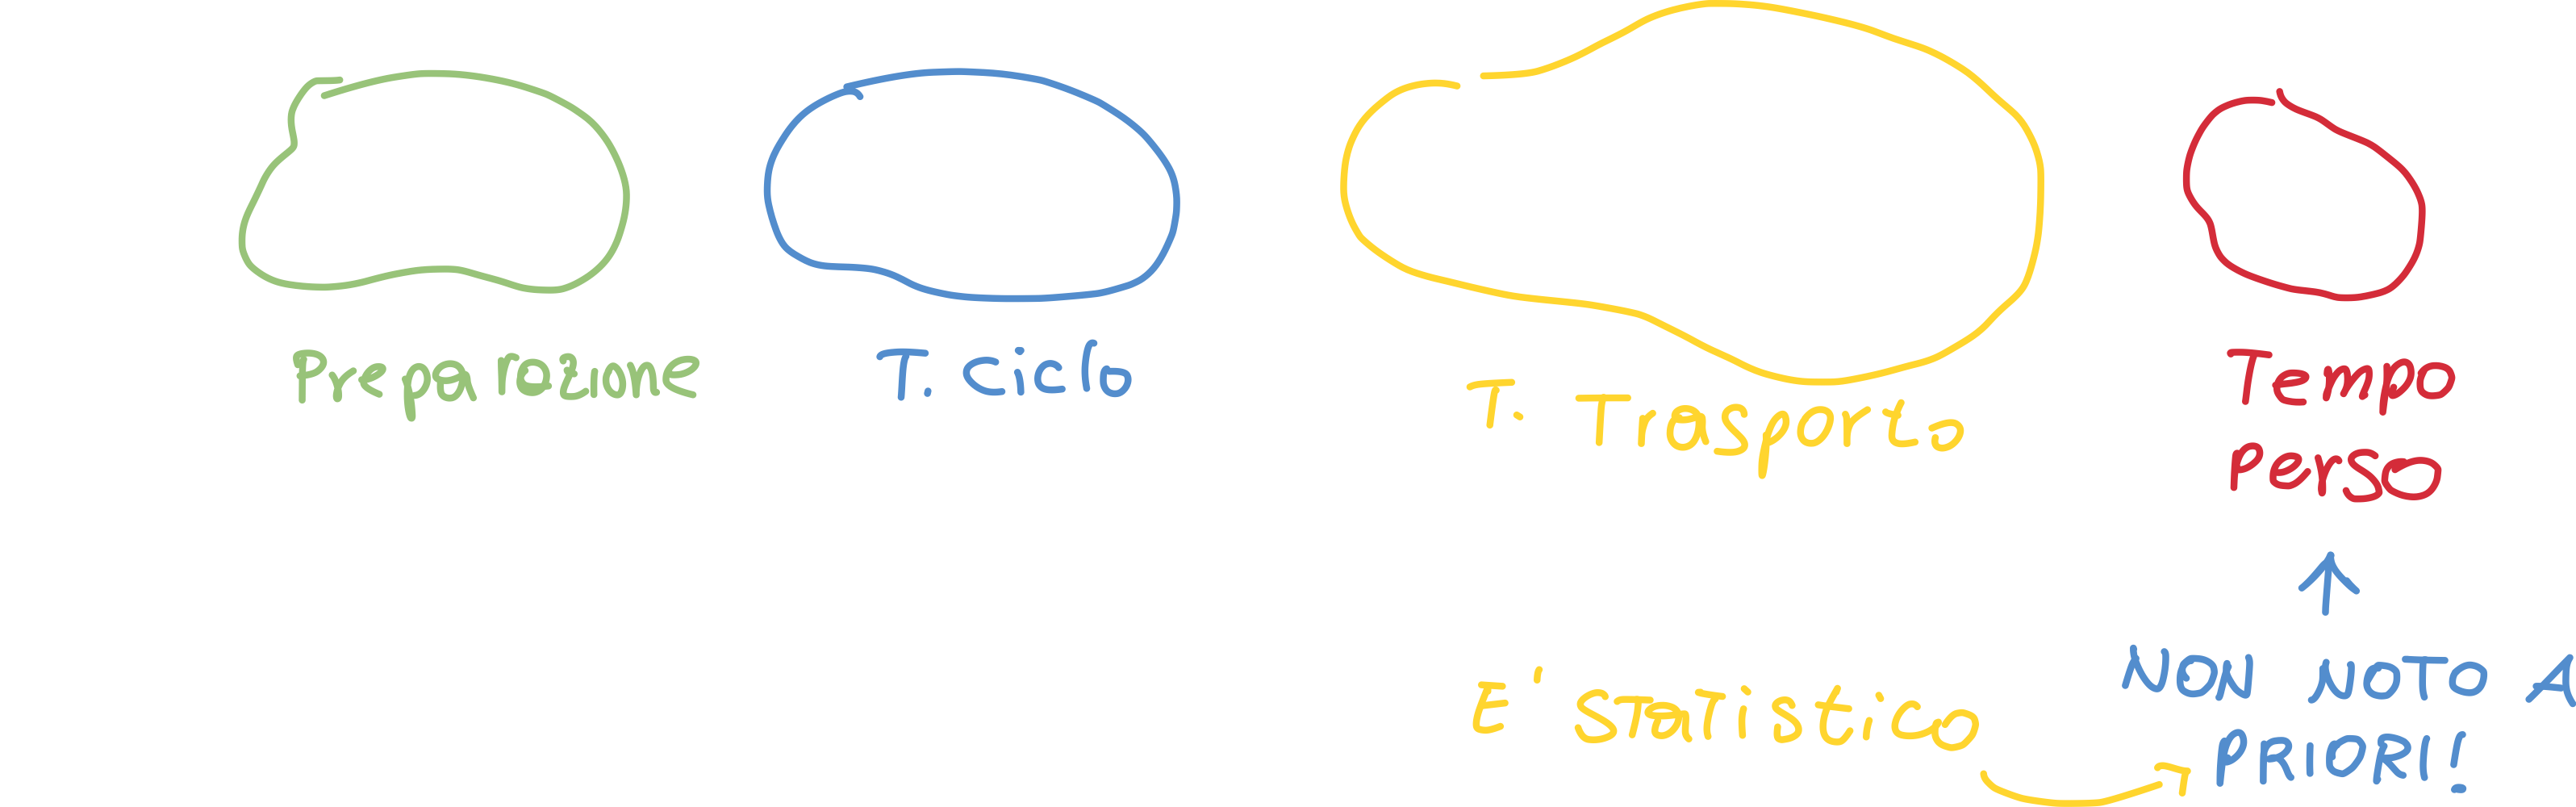 Preparazione
T. Ciclo
T. Trasporto
Tempo
Perso
E' Statistico
NON NOTO A
PRIORI!